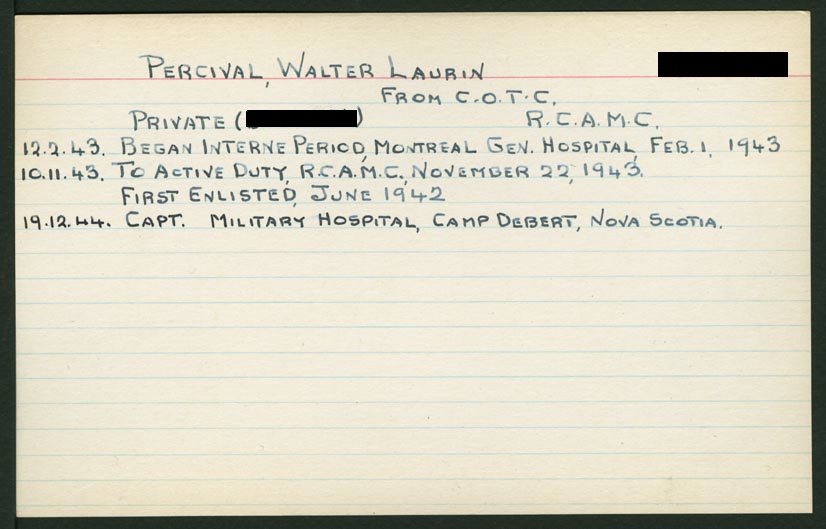 PERCIVAL, WALTER LAURIN
FROM C.O.T.C.
PRIVATE ( ) R.C.A.M.C.
12.2.43. BEGAN INTERNE PERIOD, MONTREAL GEN. HOSPITAL, FEB. 1, 1943
10.11.43. TO ACTIVE DUTY, R.C.A.M.C. NOVEMBER 22, 1943.
FIRST ENLISTED, JUNE 1942
19.12.44. CAPT. MILITARY HOSPITAL, CAMP DEBERT, NOVA SCOTIA.